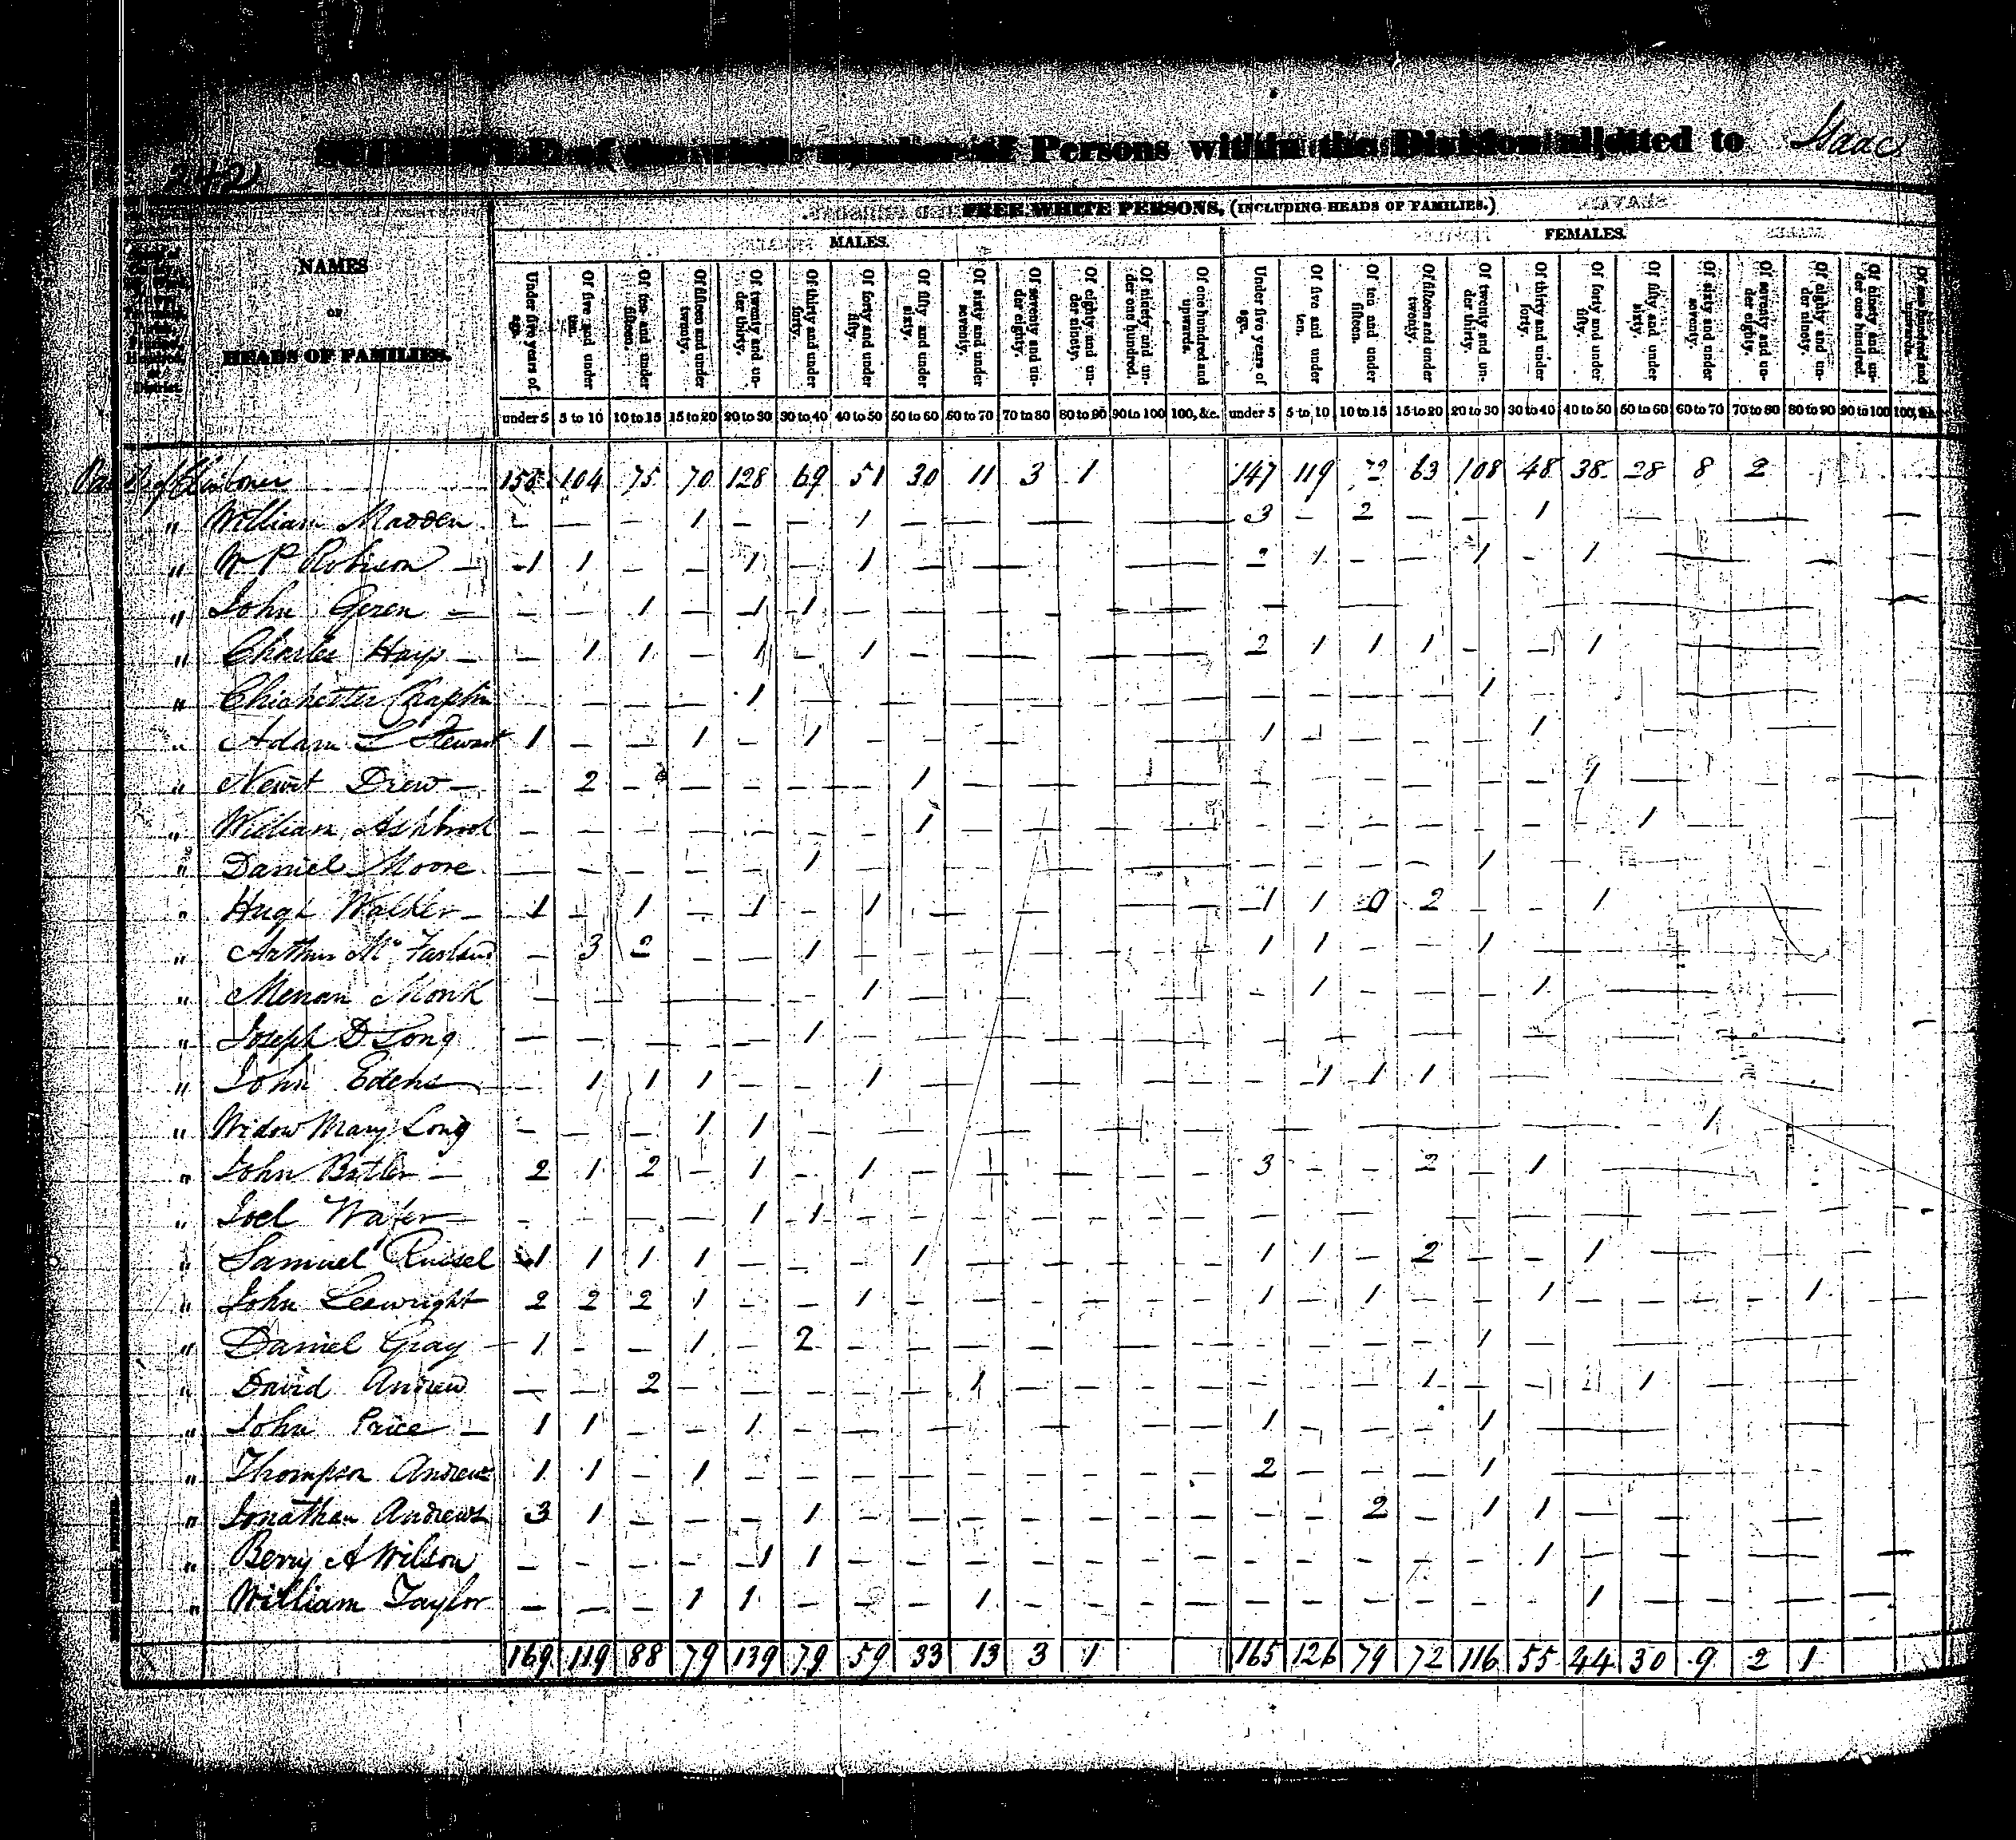 242
SCHEDULE of the whole number of Persons within the Division allotted to Isaac
FREE WHITE PERSONS, (INCLUDING HEADS OF FAMILIES.)
MALES. FEMALES.
NAMES
OF
HEADS OF FAMILIES.
Under five years of age. Of five and under ten. Of ten and under fifteen. Of fifteen and under twenty. Of twenty and under thirty. Of thirty and under forty. Of forty and under fifty. Of fifty and under sixty. Of sixty and under seventy. Of seventy and under eighty. Of eighty and under ninety. Of ninety and under one hundred. Of one hundred and upwards. Under five years of age. Of five and under ten. Of ten and under fifteen. Of fifteen and under twenty. Of twenty and under thirty. Of thirty and under forty. Of forty and under fifty. Of fifty and under sixty. Of sixty and under seventy. Of seventy and under eighty. Of eighty and under ninety. Of ninety and under one hundred. Of one hundred and upwards.
under 5 5 to 10 10 to 15 15 to 20 20 to 30 30 to 40 40 to 50 50 to 60 60 to 70 70 to 80 80 to 90 90 to 100 100, &c. under 5 5 to 10 10 to 15 15 to 20 20 to 30 30 to 40 40 to 50 50 to 60 60 to 70 70 to 80 80 to 90 90 to 100 100, &c.
of Claiborner 155 104 75 70 128 69 51 30 11 3 1 147 119 72 63 108 48 38 28 8 2
" William Madden 1 1 3 2 1
" W P Robison 1 1 1 1 2 1 1 1
" John Geren 1 1 1
" Charles Hays 1 1 1 1 2 1 1 1 1
" Chichester Chaplin 1 1
" Adam L Stewart 1 1 1 1 1
" Newit Drew 2 1 1
" William Ashbrook 1 1
" Daniel Moore 1 1
" Hugh Walker 1 1 1 1 1 1 0 2 1
" Arthur Mc Farland 3 2 1 1 1 1
" Menan Monk 1 1 1
" Joseph D Long 1
" John Edens 1 1 1 1 1 1 1
" Widow Mary Long 1 1 1
" John Butler 2 1 2 1 1 3 2 1
" Joel Wafer 1 1
" Samuel Russel 1 1 1 1 1 1 1 2 1
" John Leewright 2 2 2 1 1 1 1 1 1
" Daniel Gray 1 1 2 1
" David Andrew 2 1 1 1 1
" John Price 1 1 1 1 1
" Thompson Andrews 1 1 1 2 1
" Jonathan Andrews 3 1 1 2 1 1
" Berry A Wilson 1 1 1
" William Taylor 1 1 1 1
169 119 88 79 139 79 59 33 13 3 1 165 126 79 72 116 55 44 30 9 2 1